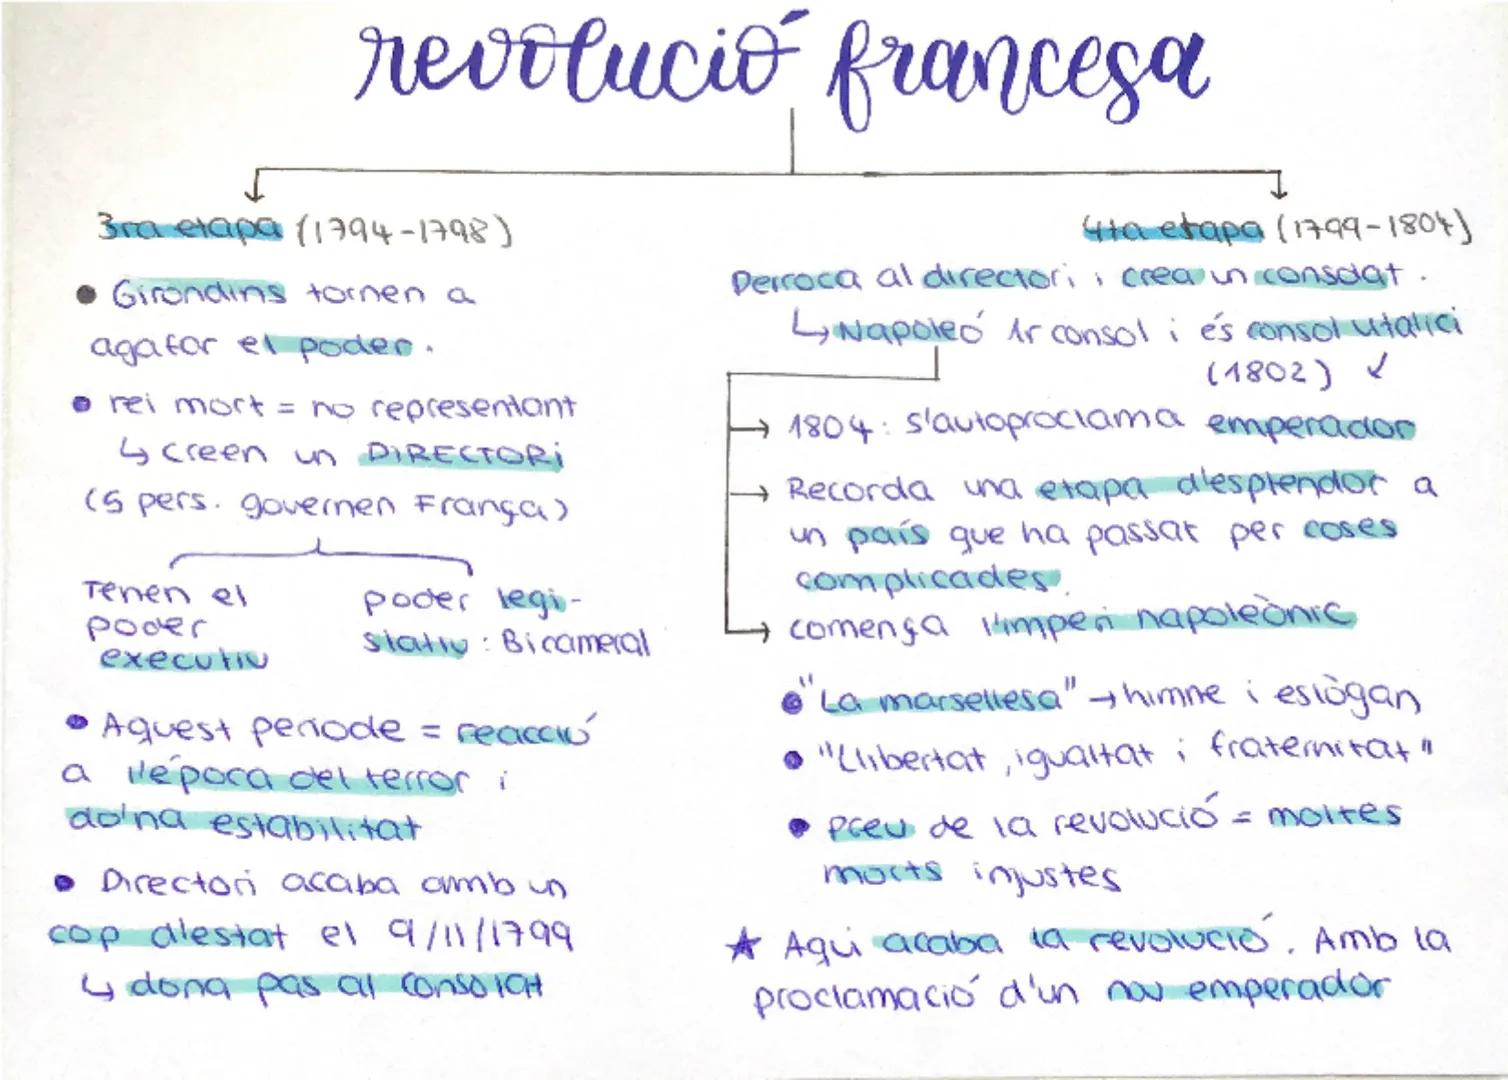 revolució francesa
3ra etapa (1794-1798)
● Girondins tornen a
agafar el poder.
● rei mort = no representant
↳ creen un DIRECTORi
(5 pers. governen França)
Tenen el
poder
executiu
poder legi-
slatiu : Bicameral
● Aquest periode = reacció
a l'època del terror i
dona estabilitat
● Directori acaba amb un
cop d'estat el 9/11/1799
↳ dona pas al consolat
4ta etapa (1799-1804)
Derroca al directori i crea un consolat.
↳ Napoleó 1r consol i és consol vitalici
(1802) ↙
→ 1804: s'autoproclama emperador
→ Recorda una etapa d'esplendor a
un país que ha passat per coses
complicades.
→ comença l'imperi napoleònic
● "La marsellesa" → himne i eslògan
● "Llibertat, igualtat i fraternitat"
● preu de la revolució = moltes
morts injustes
★ Aqui acaba la revolució. Amb la
proclamació d'un nou emperador